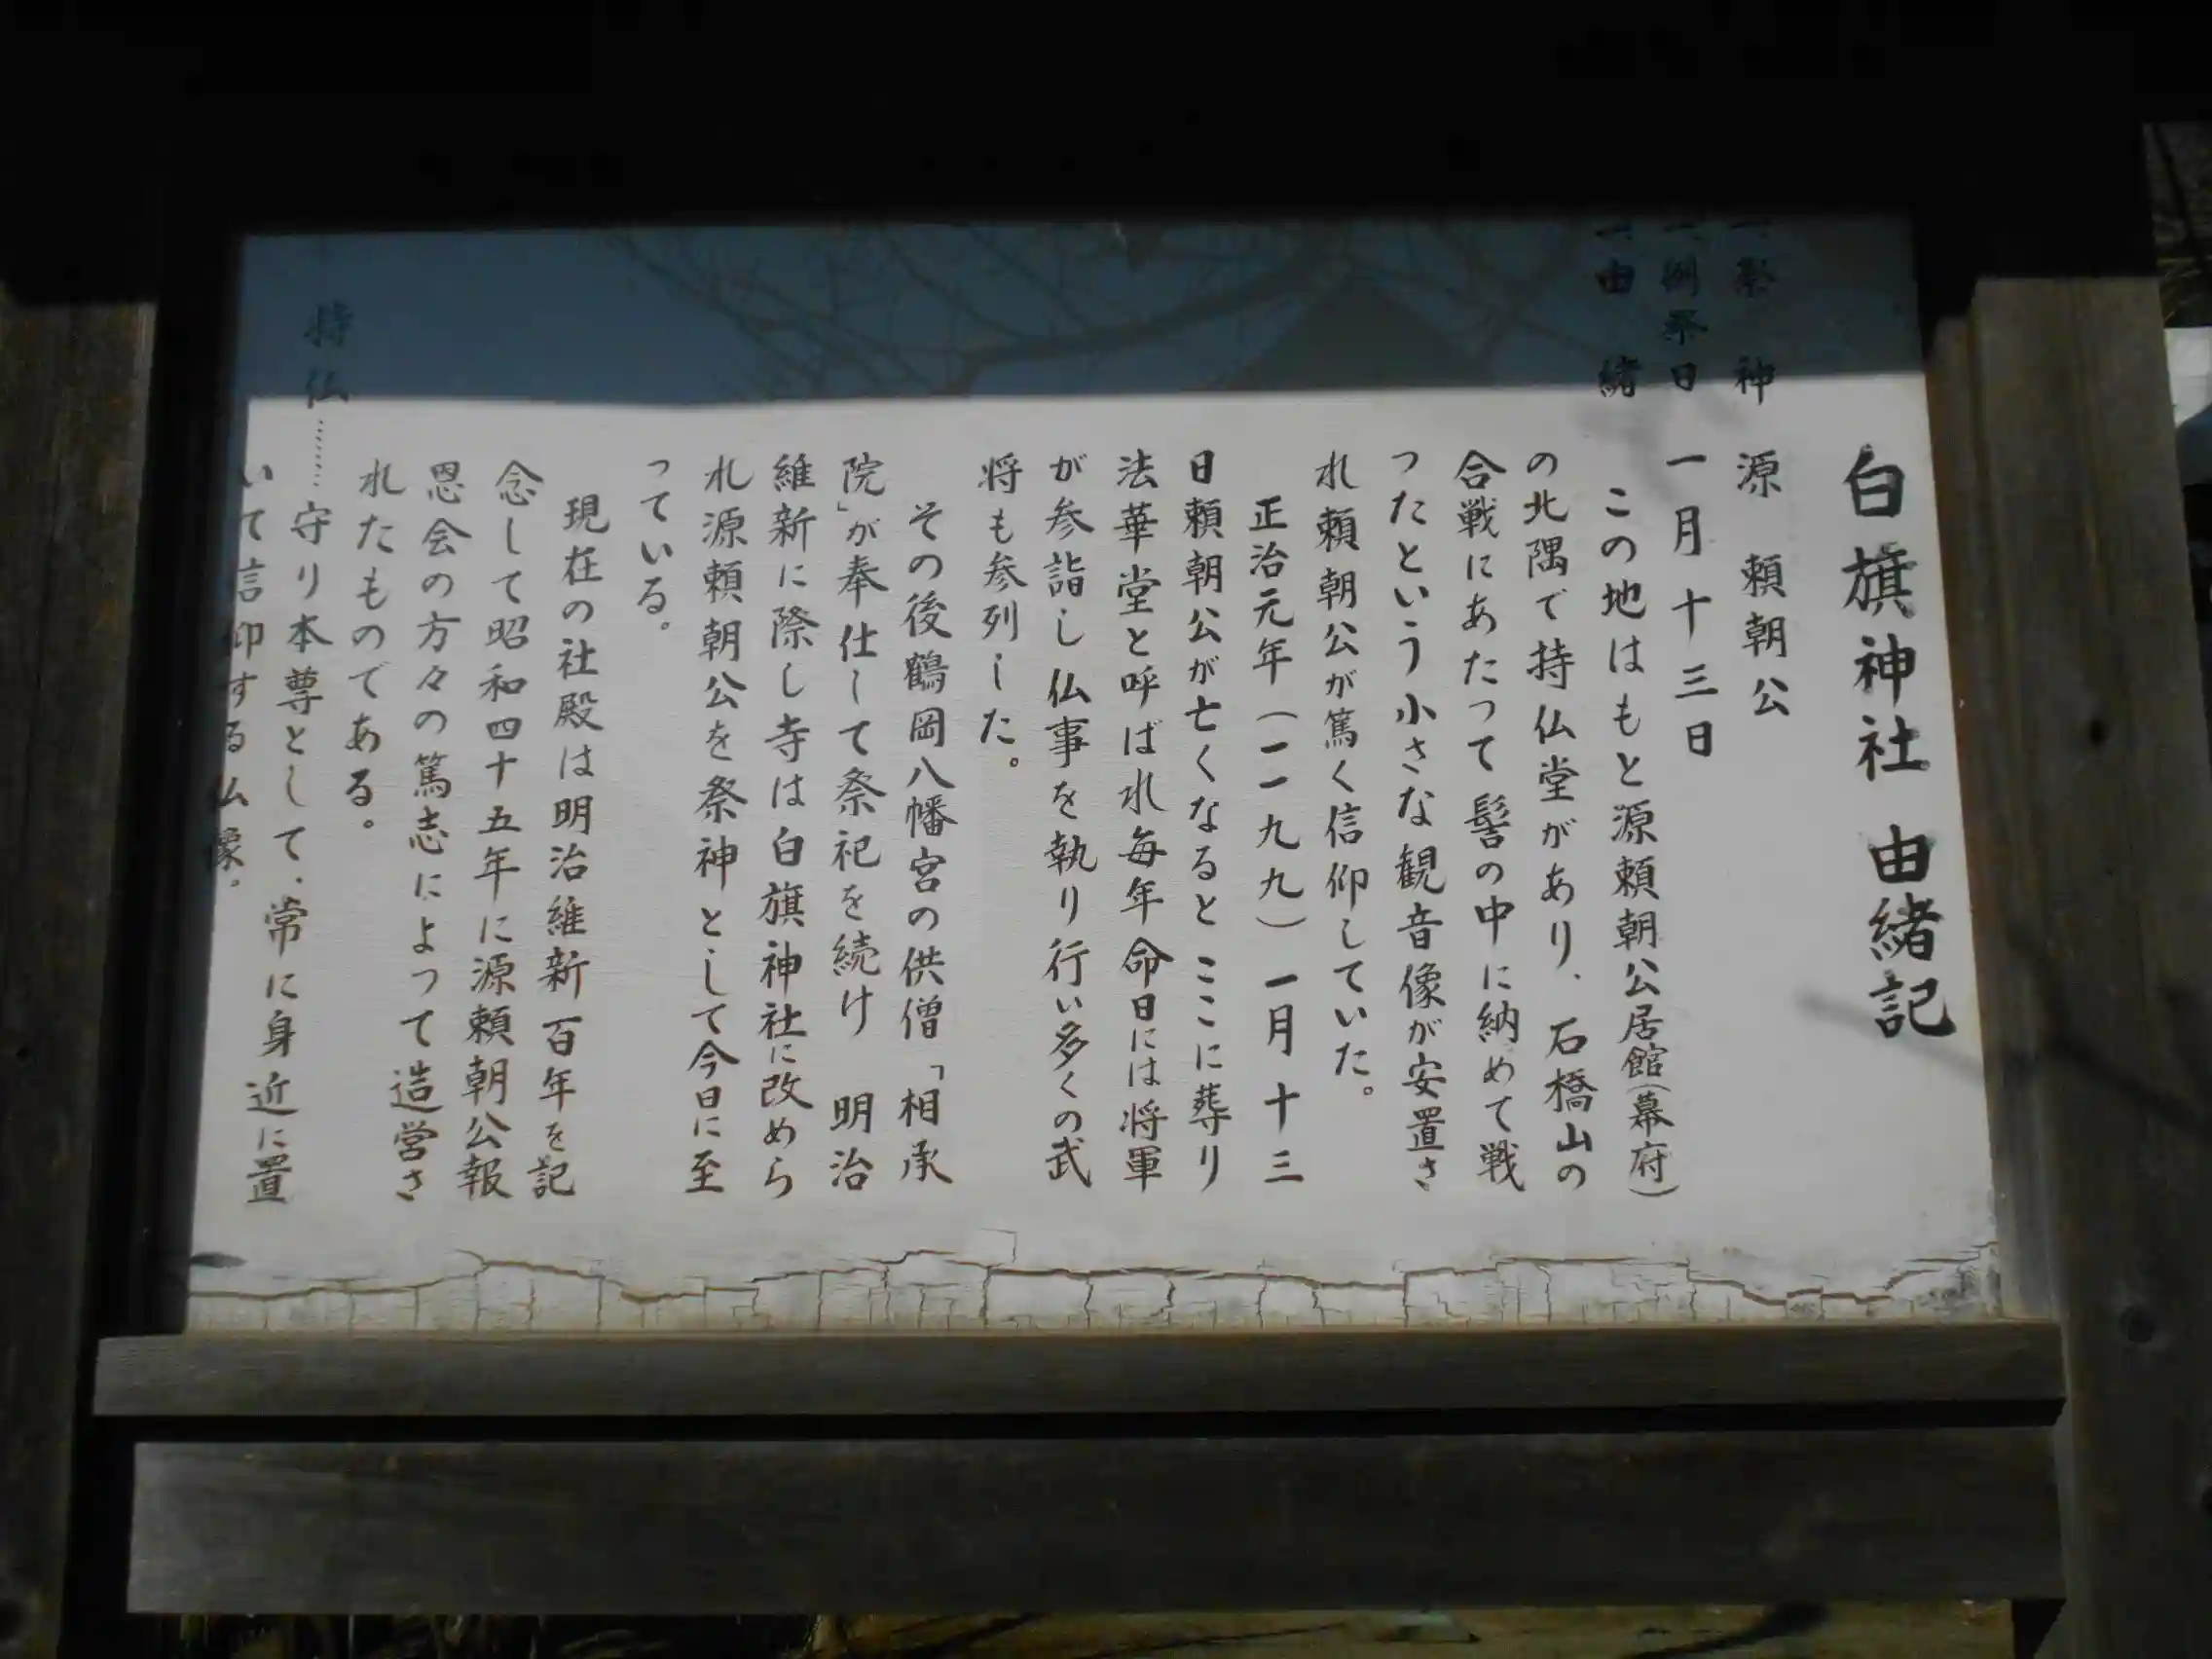 白旗神社 由緒記
一、祭 神 源 頼朝公
一、例祭日 一月十三日
一、由 緒 この地はもと源頼朝公居館(幕府)
の北隅で持仏堂があり、石橋山の
合戦にあたって髻の中に納めて戦
つたという小さな観音像が安置さ
れ頼朝公が篤く信仰していた。
正治元年(一一九九)一月十三
日頼朝公が亡くなると ここに葬り
法華堂と呼ばれ毎年命日には将軍
が参詣し仏事を執り行い多くの武
将も参列した。
その後鶴岡八幡宮の供僧「相承
院」が奉仕して祭祀を続け 明治
維新に際し寺は白旗神社に改めら
れ源頼朝公を祭神として今日に至
っている。
現在の社殿は明治維新百年を記
念して昭和四十五年に源頼朝公報
恩会の方々の篤志によって造営さ
れたものである。
持仏……守り本尊として、常に身近に置
いて信仰する仏像。